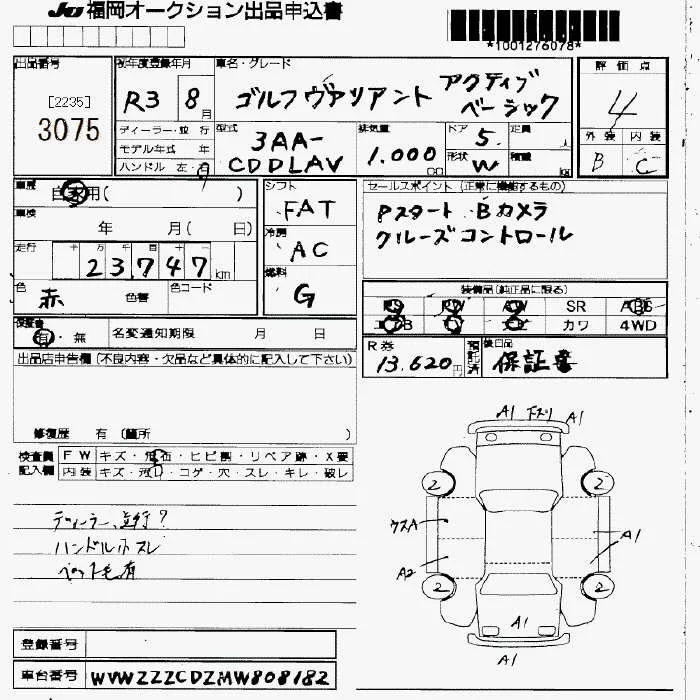 JU 福岡オークション出品申込書
*1001276078*
出品番号
[2235]
3075
初年度登録年月
R3 8月
車名・グレード
ゴルフヴァリアント アクティブベーシック
評価点
4
外装 内装
B C
ディーラー・並行
モデル年式 年
ハンドル 左・右
型式
3AA-CDDLAV
排気量
1.000 cc
ドア 5 定員 人
形状 W 積載 kg
車歴
自家用( )
車検
年 月( 日)
走行 十 万 千 百 十
23,747 km
色
赤 色替
色コード
シフト
FAT
冷房
AC
燃料
G
セールスポイント (正常に機能するもの)
Pスタート Bカメラ
クルーズコントロール
装備品(純正品に限る)
PS PW AW SR ABS
カワ 4WD
保証書
有・無
名変通知期限 月 日
R券
13.620円
預託済
後日品
保証書
出品店申告欄(不良内容・欠品など具体的に記入して下さい)
修復歴 有 (箇所 )
検査員記入欄
FW キズ・飛石・ヒビ割・リペア跡・X要
内装 キズ・汚れ・コゲ・穴・スレ・キレ・破レ
ディーラー、並行?
ハンドルホスレ
ペット毛有
A1 下ズリ A1
2 2
A1
A2 A1
2 2
A1
A1
登録番号
車台番号 WVWZZZCDZMW808182